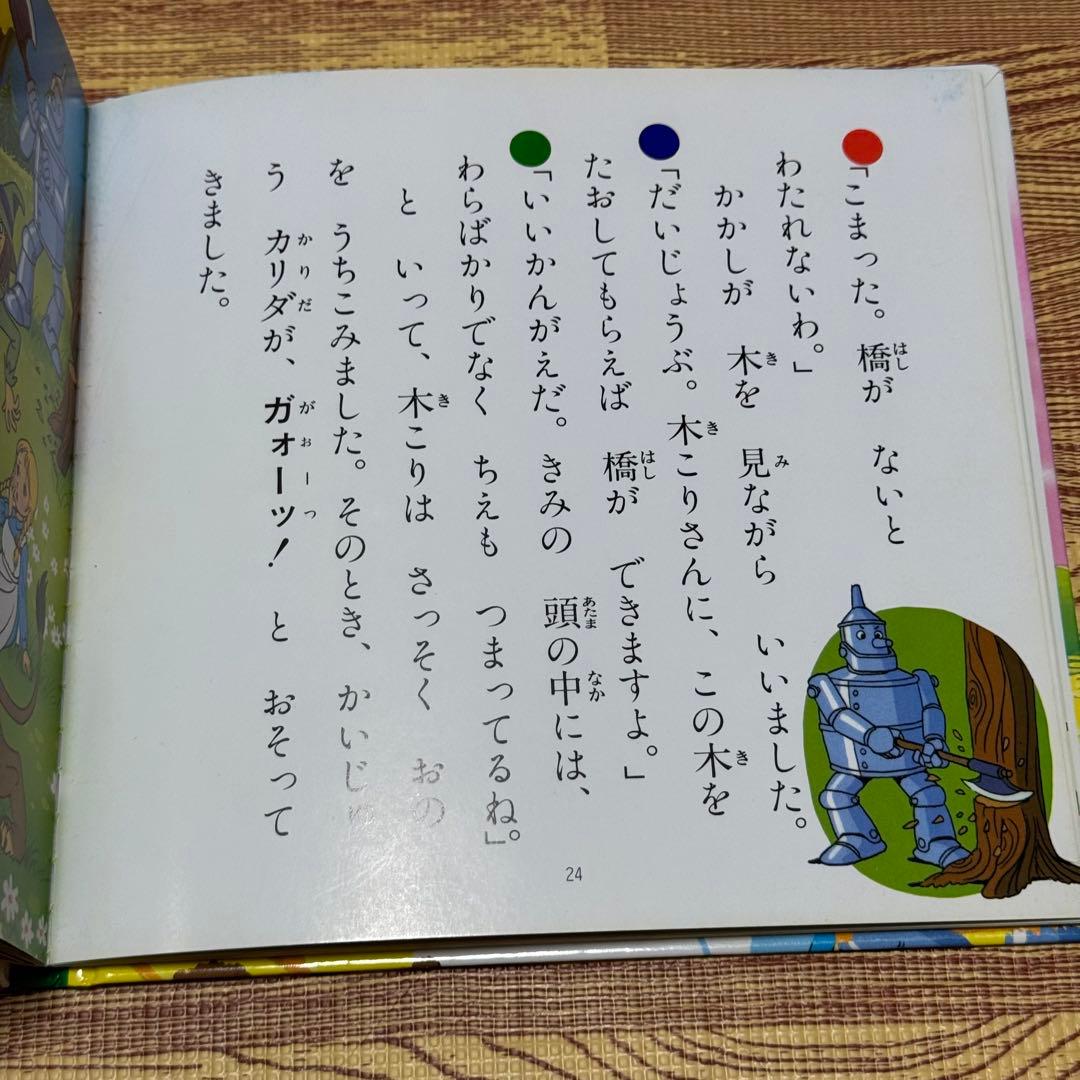 「こまった。橋が　ないと
わたれないわ。」
かかしが　木を　見ながら　いいました。
「だいじょうぶ。木こりさんに、この木を
たおしてもらえば　橋が　できますよ。」
「いいかんがえだ。きみの　頭の中には、
わらばかりでなく　ちえも　つまってるね」。
と　いって、木こりは　さっそく　おの
を　うちこみました。そのとき、かいじゅ
う　カリダが、ガォーッ！　と　おそって
きました。
はし
き
み
き
き
はし
あたま
なか
き
かりだ
がぉーっ
24